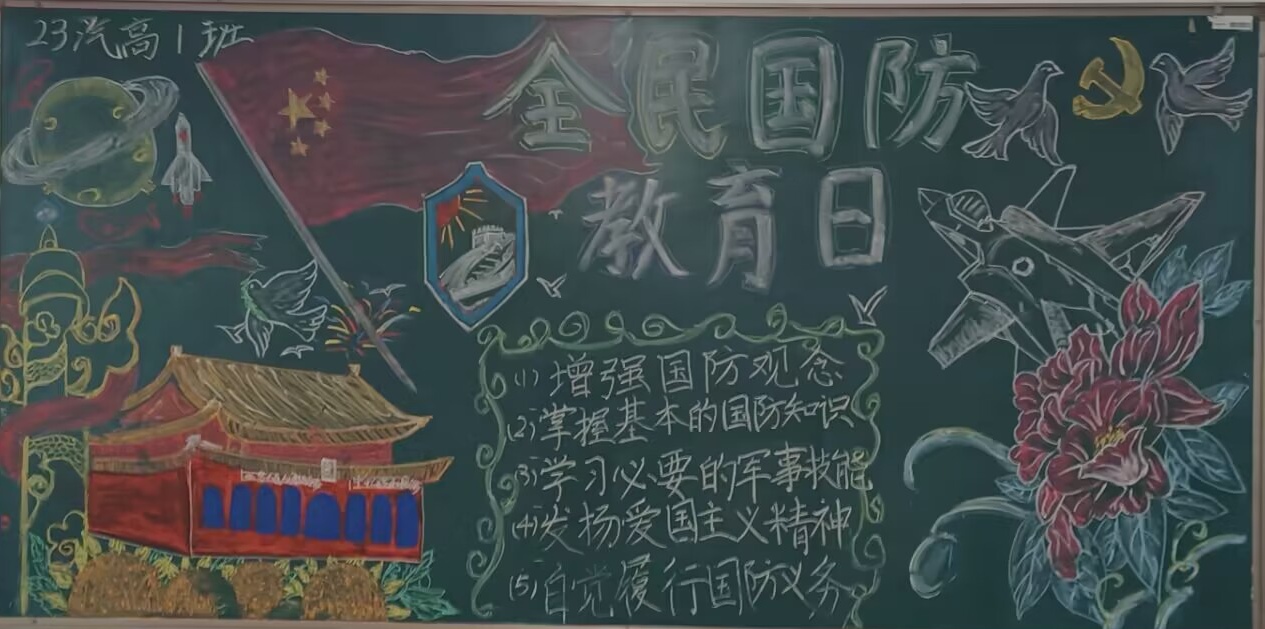 23汽高1班
全民国防
教育日
(1)增强国防观念
(2)掌握基本的国防知识
(3)学习必要的军事技能
(4)发扬爱国主义精神
(5)自觉履行国防义务